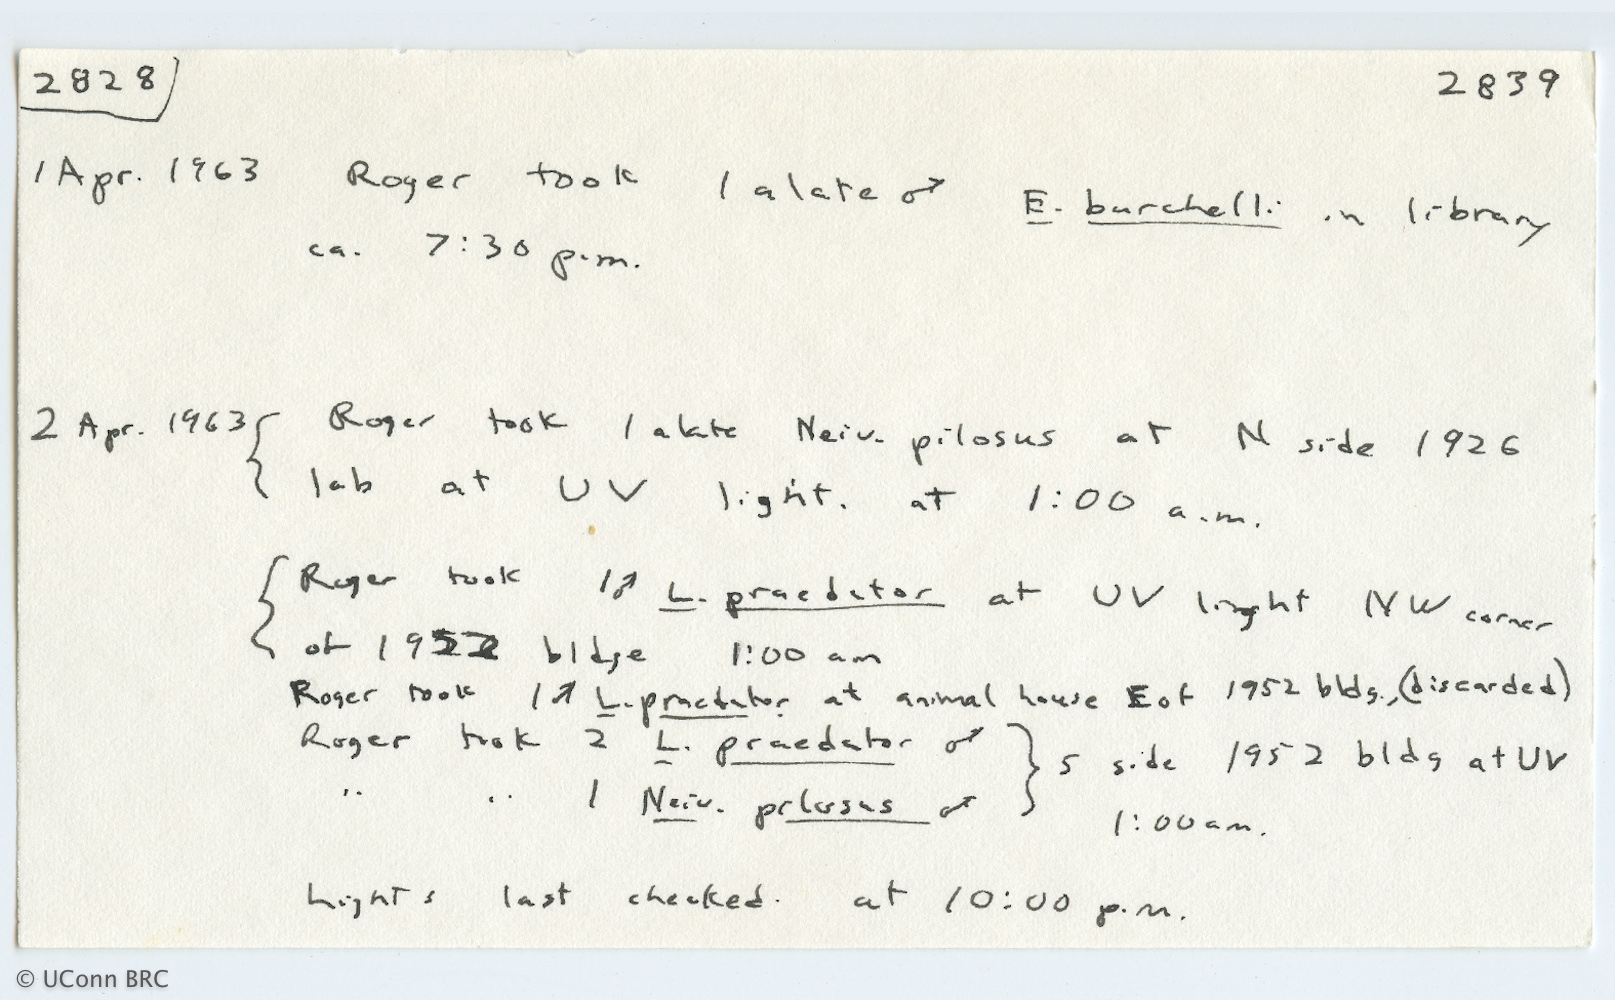 2828 2839
1 Apr. 1963 Roger took 1 alate ♂ E. burchelli in library
ca. 7:30 p.m.
2 Apr. 1963 { Roger took 1 alate Neiv. pilosus at N side 1926
lab at UV light. at 1:00 a.m.
{ Roger took 1♂ L. praedator at UV light NW corner
of 1952 bldge 1:00 am
Roger took 1♂ L. praedator at animal house E of 1952 bldg., (discarded)
Roger took 2 L. praedator ♂ } S side 1952 bldg at UV
" " 1 Neiv. pilosus ♂ 1:00 am.
Lights last checked. at 10:00 p.m.
© UConn BRC